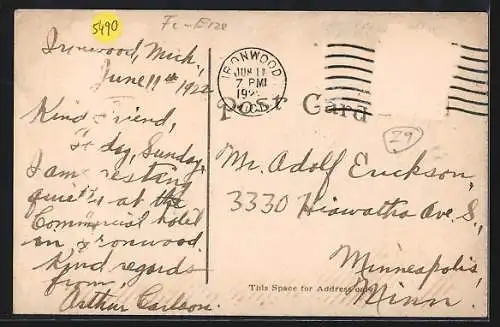 5490
Fc-Erze
Ironwood, Mich.,
June 11th, 1922
Kind Friend,
Today, Sunday,
I am resting
quietly at the
Commercial hotel
in Ironwood.
Kind regards
from,
Arthur Carlson.
IRONWOOD
JUN 11
7 PM
192
MICH.
Post Card
29
Mr. Adolf Erickson,
3330 Hiawatha Ave. S.,
Minneapolis,
Minn.
This Space for Address only